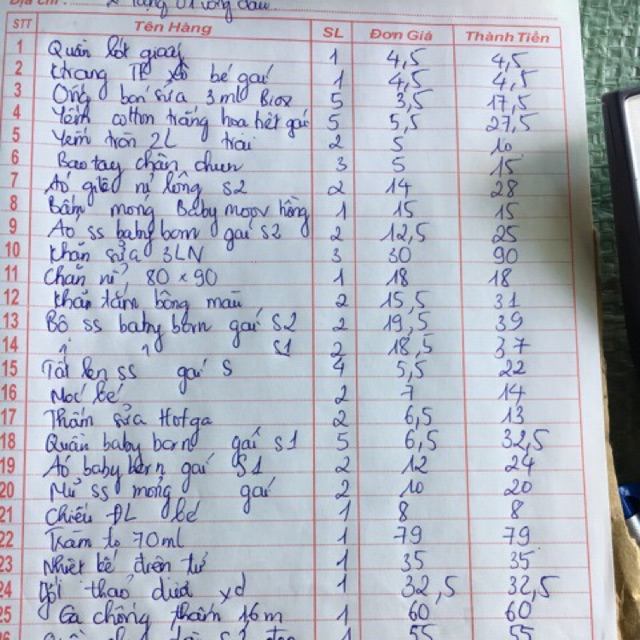 Địa chỉ:
STT Tên Hàng SL Đơn Giá Thành Tiền
1 Quần lót giấy 1 4,5 4,5
2 Khang bé gái 1 4,5 4,5
3 Ống sữa 3ml Biox 5 3,5 17,5
4 Yếm cotton trắng hoa tiết gái 5 5,5 27,5
5 Yếm tròn 2L trái 2 5 10
6 Bao tay chân chun 3 5 15
7 Áo nỉ lông S2 2 14 28
8 Bấm móng Baby moov hồng 1 15 15
9 Áo ss baby born gái S2 2 12,5 25
10 Khăn sữa 3LN 3 30 90
11 Chăn nỉ 80 x 90 1 18 18
12 Khăn tắm bông màu 2 15,5 31
13 Bộ ss baby born gái S2 2 19,5 39
14 S1 2 18,5 37
15 Tất len ss gái S 4 5,5 22
16 bé 2 7 14
17 sữa Hotga 2 6,5 13
18 Quần baby born gái S1 5 6,5 32,5
19 Áo baby born gái S1 2 12 24
20 Mũ ss mỏng gái 2 10 20
21 Chiếu ĐL bé 1 8 8
22 70ml 1 79 79
23 Nhiệt kế điện tử 1 35 35
24 1 32,5 32,5
25 Ga chống thấm 1,6m 1 60 60
26 55 55